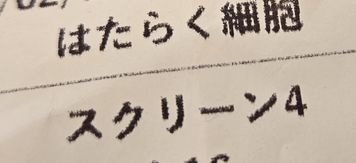 はたらく細胞
スクリーン4